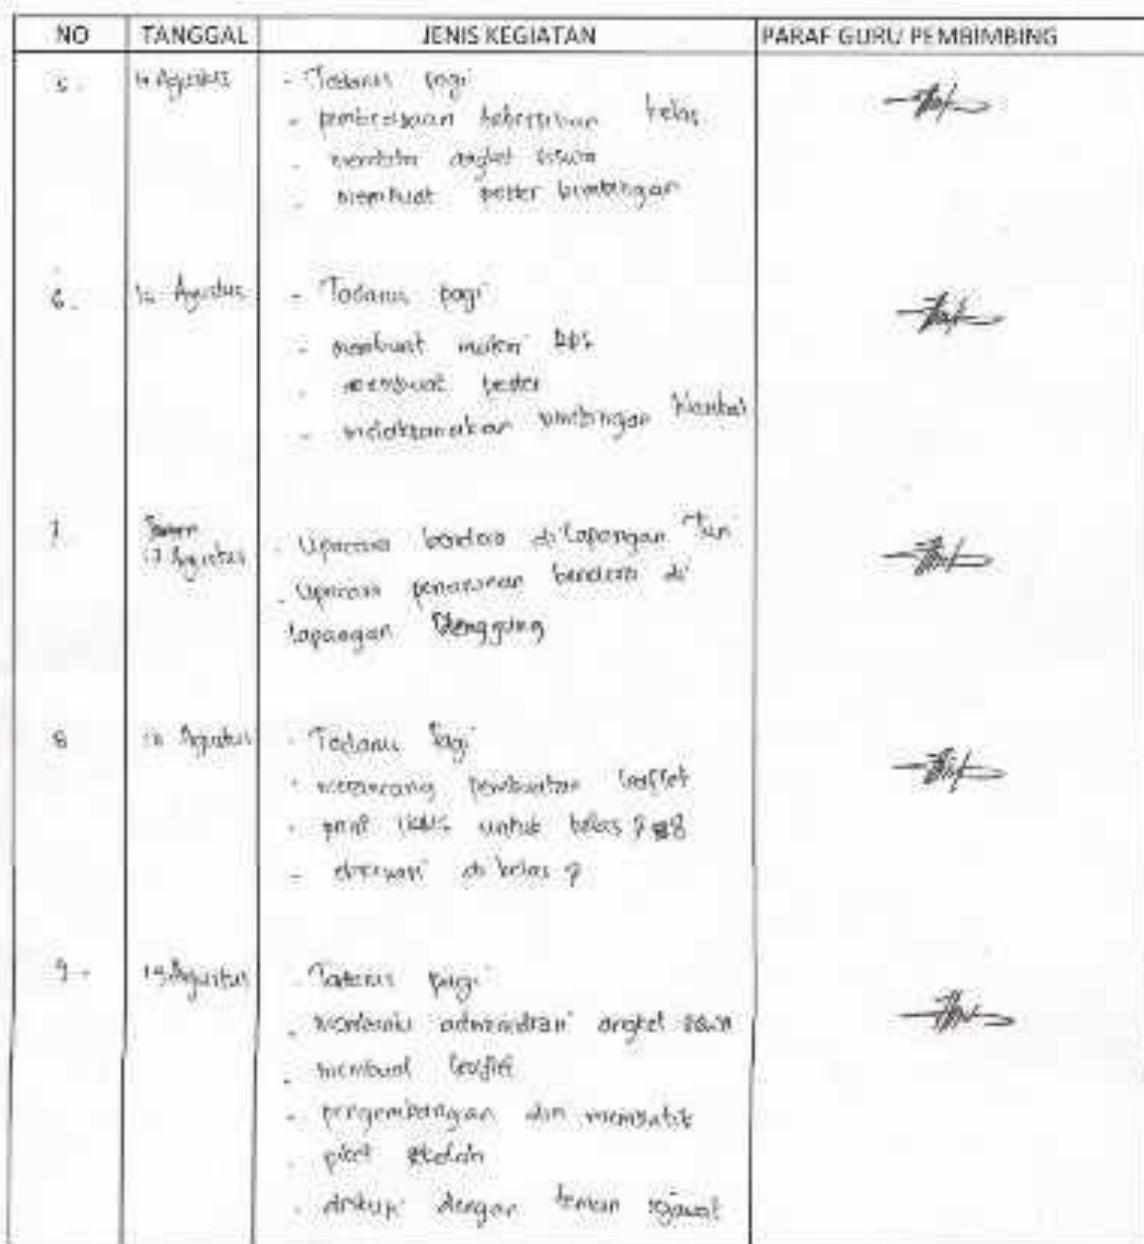 NO TANGGAL JENIS KEGIATAN PARAF GURU PEMBIMBING
5. Agustus - Tadarus pagi
- kelas
- angket siswa
- membuat poster bimbingan
6. Agustus - Tadarus pagi
- membuat materi PPL
- membuat poster
- melaksanakan bimbingan klasikal
7. 17 Agustus - Upacara bendera di lapangan
- Upacara penurunan bendera di
lapangan Denggung
8 18 Agustus - Tadarus pagi
- merancang pembuatan leaflet
- print untuk kelas 7 8
- di kelas 7
9. 19 Agustus - Tadarus pagi
- angket siswa
- membuat leaflet
- pengembangan diri membatik
- piket sekolah
- diskusi dengan teman sejawat